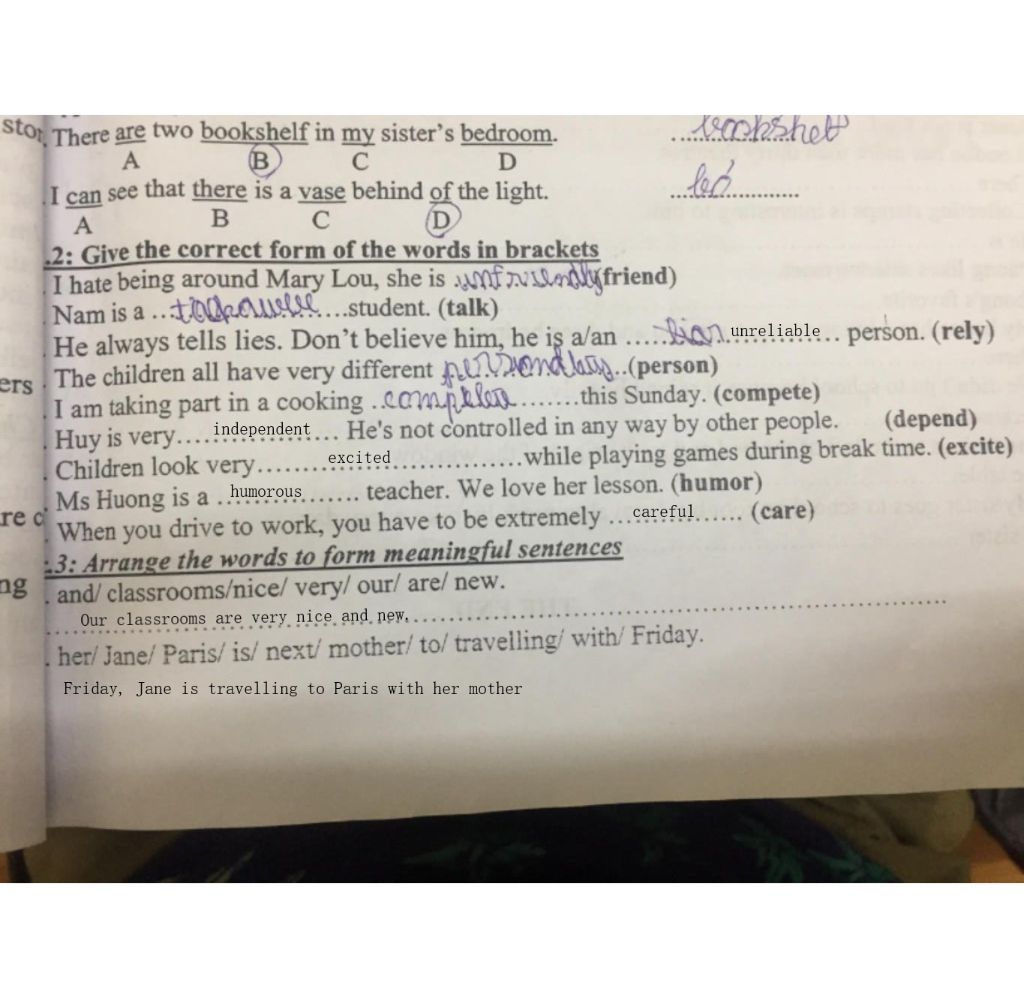 stor
There are two bookshelf in my sister's bedroom.
A B C D
I can see that there is a vase behind of the light.
A B C D
.2: Give the correct form of the words in brackets
I hate being around Mary Lou, she is unfriendly (friend)
Nam is a ... ....student. (talk)
He always tells lies. Don't believe him, he is a/an .....liar unreliable... person. (rely)
ers . The children all have very different ..(person)
. I am taking part in a cooking .. ........this Sunday. (compete)
. Huy is very.... independent .... He's not controlled in any way by other people. (depend)
. Children look very........ excited ................while playing games during break time. (excite)
. Ms Huong is a .humorous....... teacher. We love her lesson. (humor)
re c . When you drive to work, you have to be extremely ...careful...... (care)
.3: Arrange the words to form meaningful sentences
ng . and/ classrooms/nice/ very/ our/ are/ new.
Our classrooms are very nice and new.
. her/ Jane/ Paris/ is/ next/ mother/ to/ travelling/ with/ Friday.
Friday, Jane is travelling to Paris with her mother